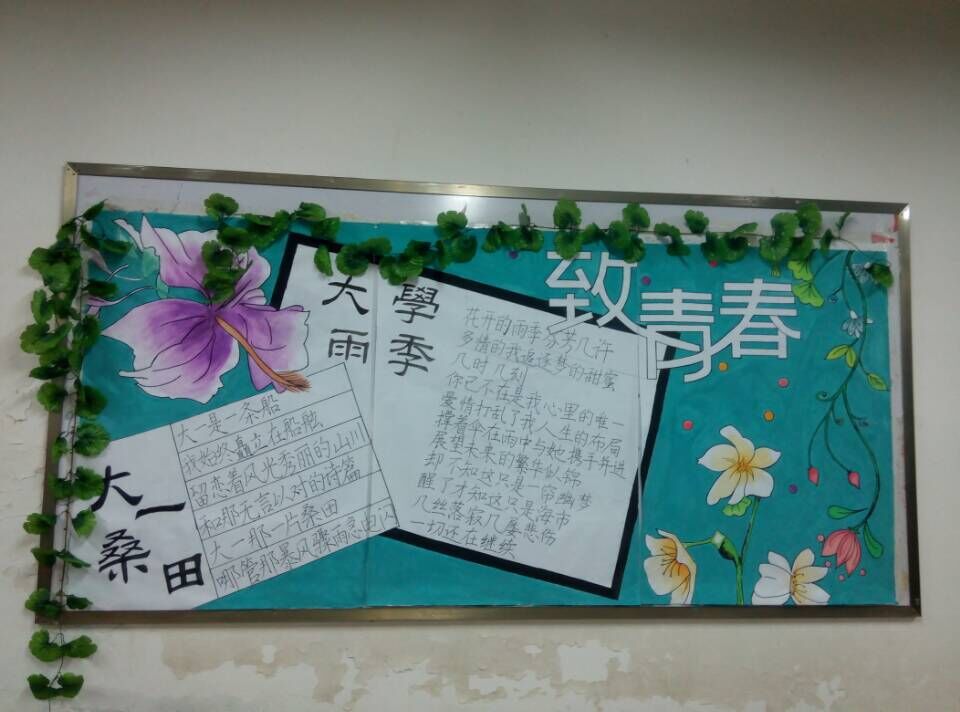 致青春
大學
雨季
花开的雨季芬芳几许
多情的我追逐梦的甜蜜
几时几刻
你已不在是我心里的唯一
爱情打乱了我人生的布局
撑着伞在雨中与她携手并进
展望未来的繁华似锦
却不知这只是一帘幽梦
醒了才知这只是海市
几丝落寂几屡悲伤
一切还在继续
大一
桑田
大一是一条船
我始终矗立在船舷
留恋着风光秀丽的山川
和那无言以对的诗篇
大一那一片桑田
哪管那暴风骤雨忽由闪